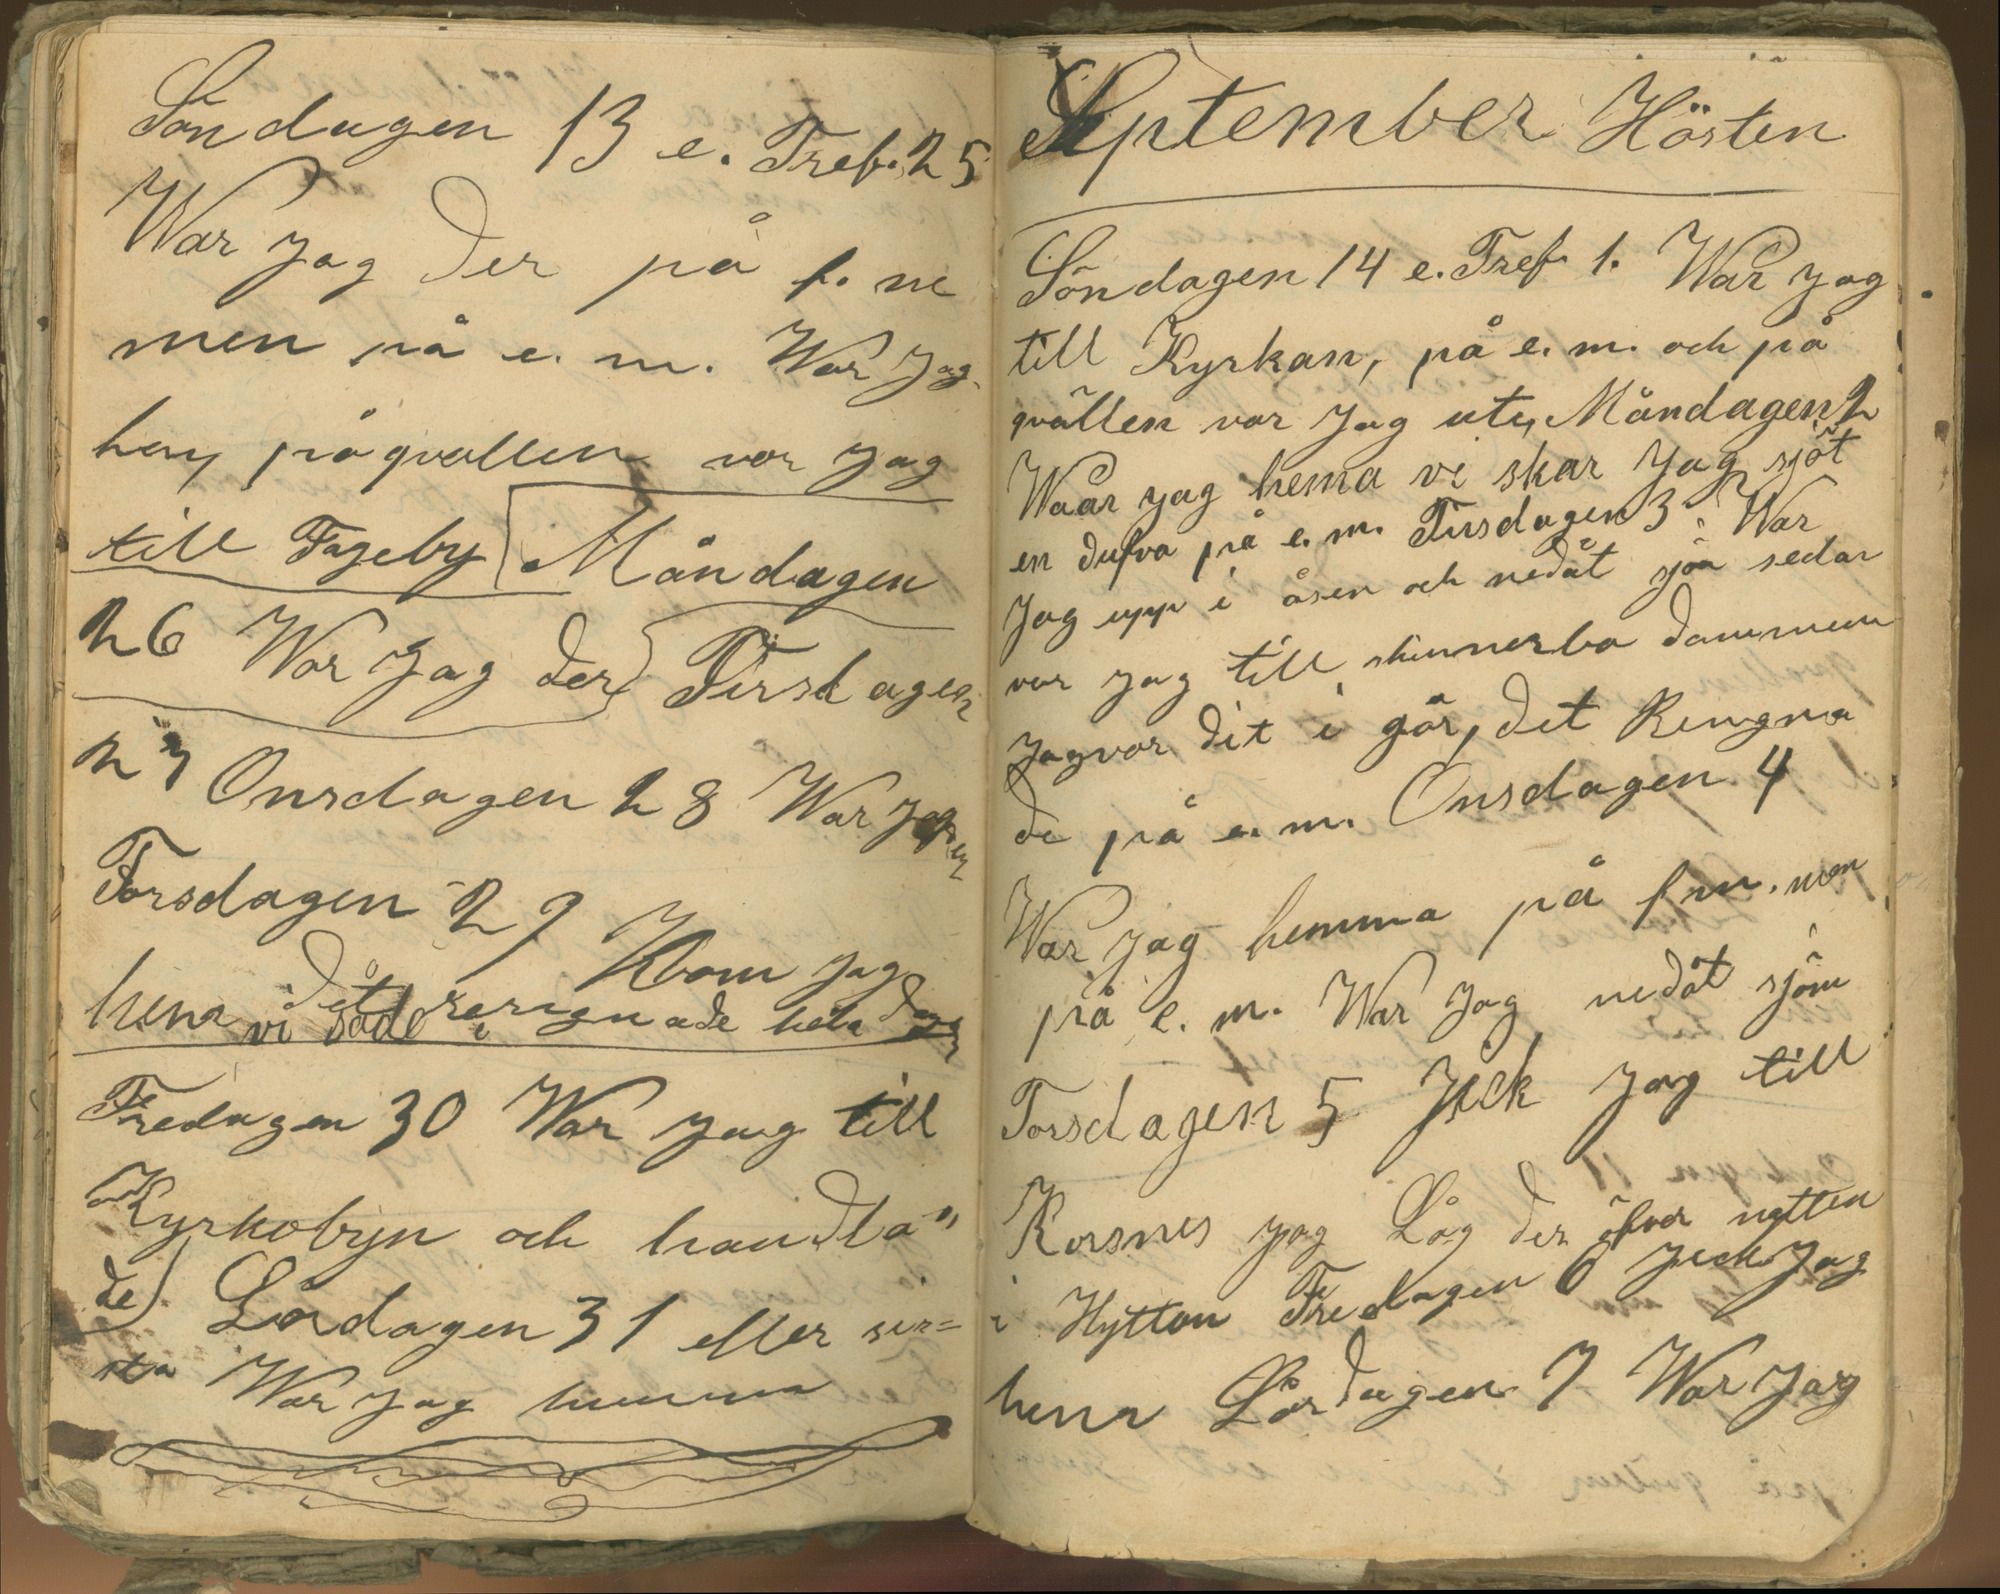 Söndagen 13 e. Tref. 25
War Jag der på f. m
men på e. m. War Jag
hem, på qvällen var Jag
till Fageby Måndagen
26 War Jag der Tirsdagen
27 Onsdagen 28 War Jag
Torsdagen 29 Kom Jag
hem det rengnade hela dagen
vi både
Fredagen 30 War Jag till
Kyrkobyn och handla"
de) Lördagen 31 eller sis=
sta War Jag hemma
September Hösten
Söndagen 14 e. Tref. 1. War Jag
till Kyrkan, på e. m. och på
qvällen var Jag ute, Måndagen 2
Waar Jag hema vi skar Jag sjöt
en dufva på e. m. Tirsdagen 3 War
Jag upp i åsen och nedåt sjön sedan
var Jag till dammem
Jag var dit i går, det Rengna
de på e. m. Onsdagen 4
War Jag hemma på f m. men
på e. m. War Jag nedåt sjön
Torsdagen 5 Jick Jag till
Korsnes Jag Låg der öfver natten
i Hyttan Fredagen 6 Jick Jag
hem Lördagen 7 War Jag